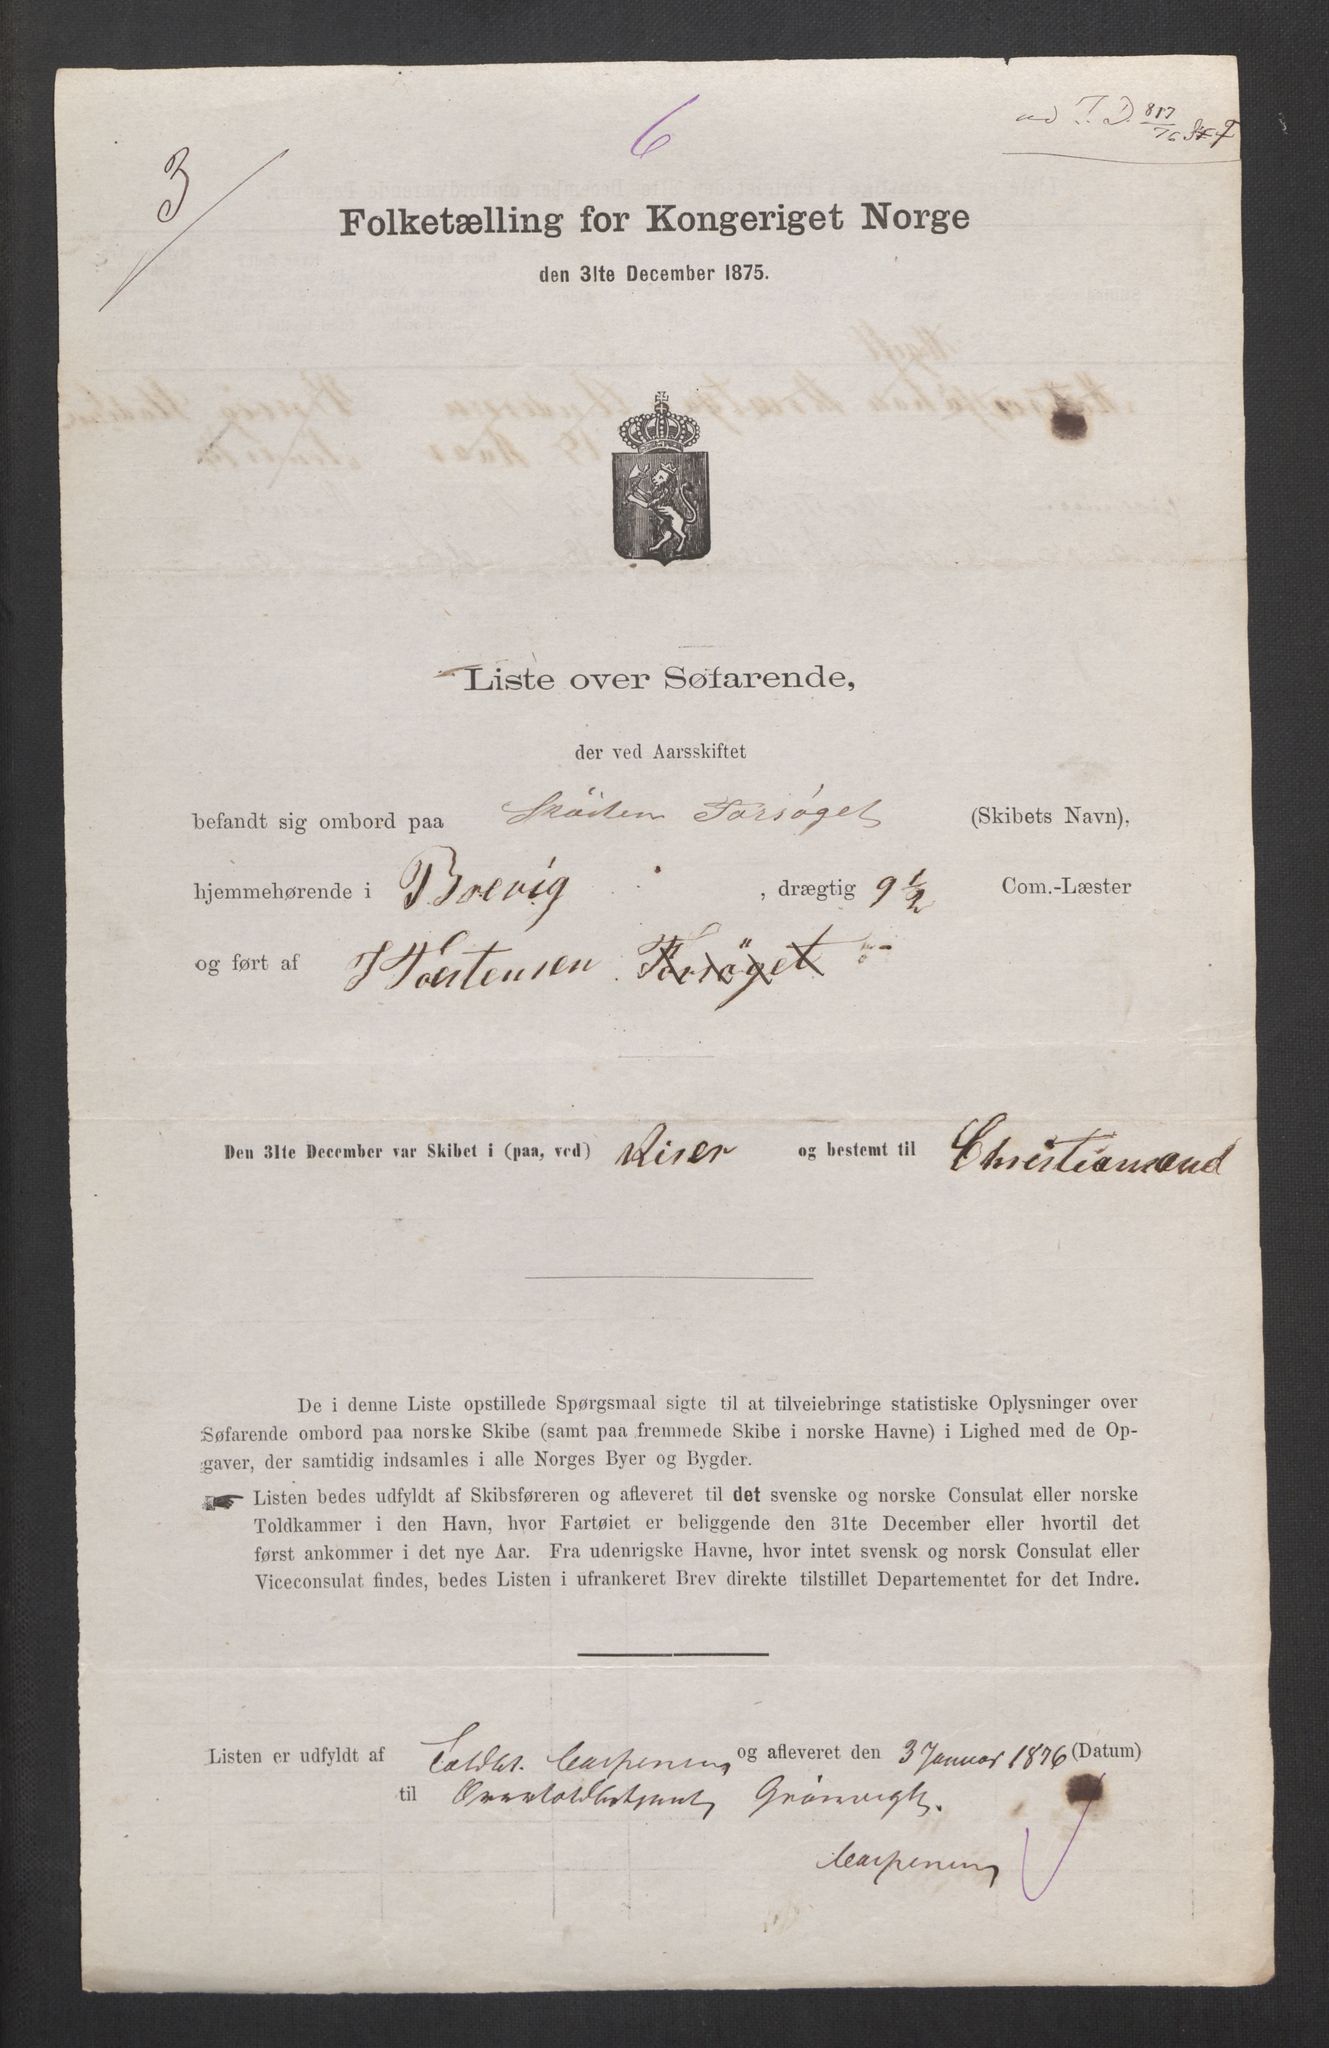 ad T. D. 817/76
6
3
Folketælling for Kongeriget Norge
den 31te December 1875.
Liste over Søfarende,
der ved Aarsskiftet
befandt sig ombord paa Sköiten Forsøget (Skibets Navn),
hjemmehørende i Brevig , drægtig 9 1/2 Com.-Læster
og ført af Torstensen Forsöget
Den 31te December var Skibet i (paa, ved) Riser og bestemt til Christiansand
De i denne Liste opstillede Spørgsmaal sigte til at tilveiebringe statistiske Oplysninger over
Søfarende ombord paa norske Skibe (samt paa fremmede Skibe i norske Havne) i Lighed med de Op-
gaver, der samtidig indsamles i alle Norges Byer og Bygder.
☛ Listen bedes udfyldt af Skibsføreren og afleveret til det svenske og norske Consulat eller norske
Toldkammer i den Havn, hvor Fartøiet er beliggende den 31te December eller hvortil det
først ankommer i det nye Aar. Fra udenrigske Havne, hvor intet svensk og norsk Consulat eller
Viceconsulat findes, bedes Listen i ufrankeret Brev direkte tilstillet Departementet for det Indre.
Listen er udfyldt af Toldbt. Caspersen og afleveret den 3 Januar 1876 (Datum)
til Overtoldbetjent Grönvigh.
Caspersen